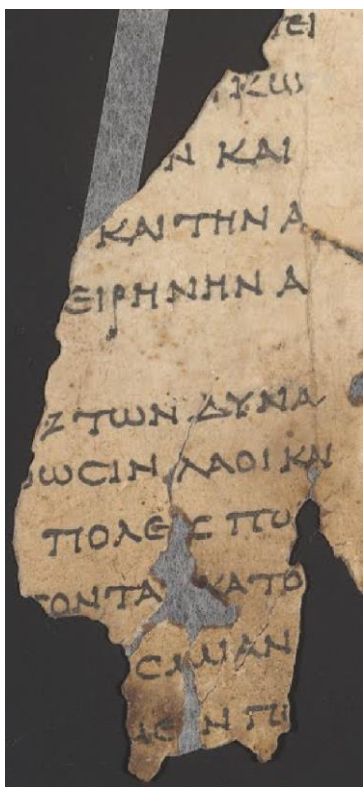 ΕΙ
ΚΩ
Ν ΚΑΙ
ΚΑΙ ΤΗΝ Α
ΕΙΡΗΝΗΝ Α
Ζ ΤΩΝ ΔΥΝΑ
ΩϹΙΝ ΛΑΟΙ ΚΑΙ
ΠΟΛΕΙϹ ΠΟ
ΟΝΤΑΙ ΚΑΤΟ
Ϲ ΜΙΑΝ